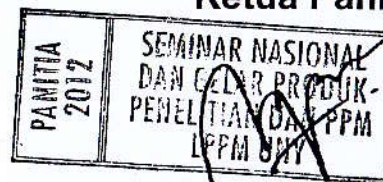 Ketua Pani
PANITIA
2012
SEMINAR NASIONAL
DAN GELAR PRODUK
PENELITIAN DAN PPM
LPPM UNY